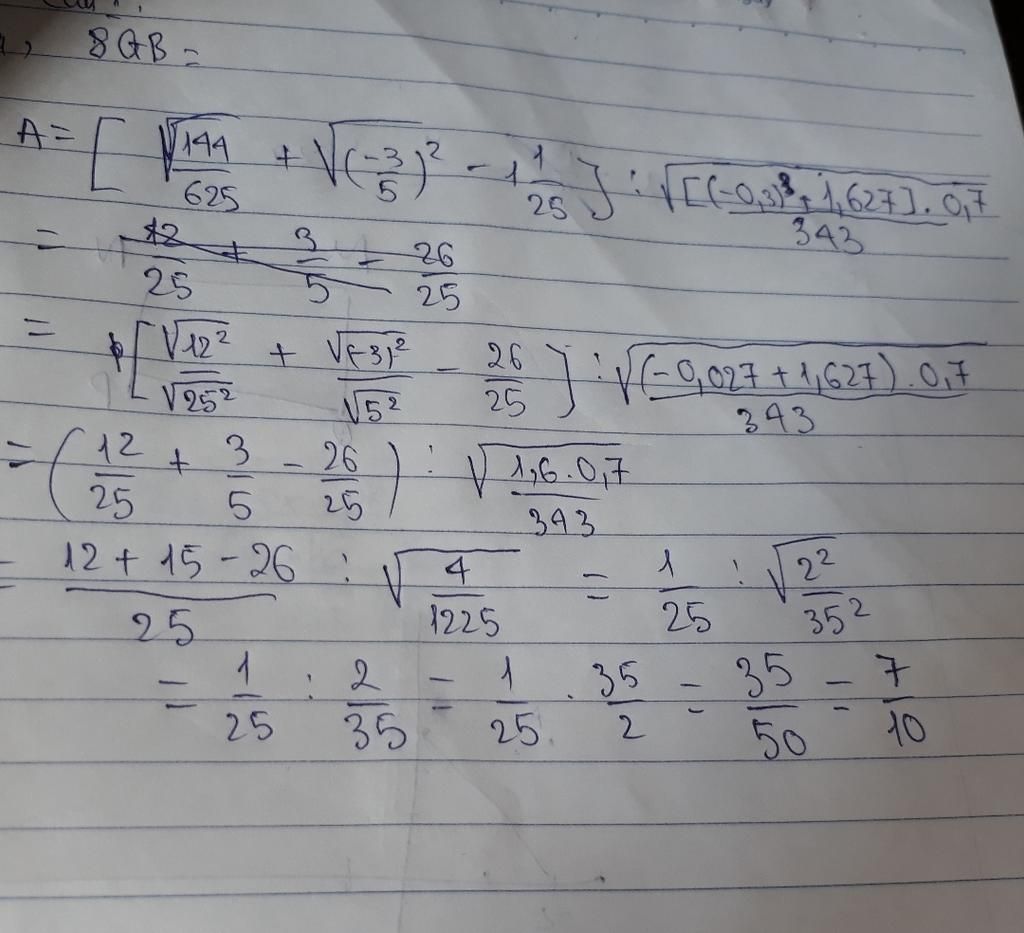 8GB =
A = [ √144/625 + √(-3/5)² - 1 1/25 ] : √[(-0,3)³ + 1,627] . 0,7/343
= 12/25 + 3/5 - 26/25
= [ √12²/√25² + √(-3)²/√5² - 26/25 ] : √(-0,027 + 1,627) . 0,7/343
= ( 12/25 + 3/5 - 26/25 ) : √1,6 . 0,7/343
= 12 + 15 - 26/25 : √4/1225 = 1/25 : √2²/35²
= 1/25 : 2/35 = 1/25 . 35/2 = 35/50 = 7/10